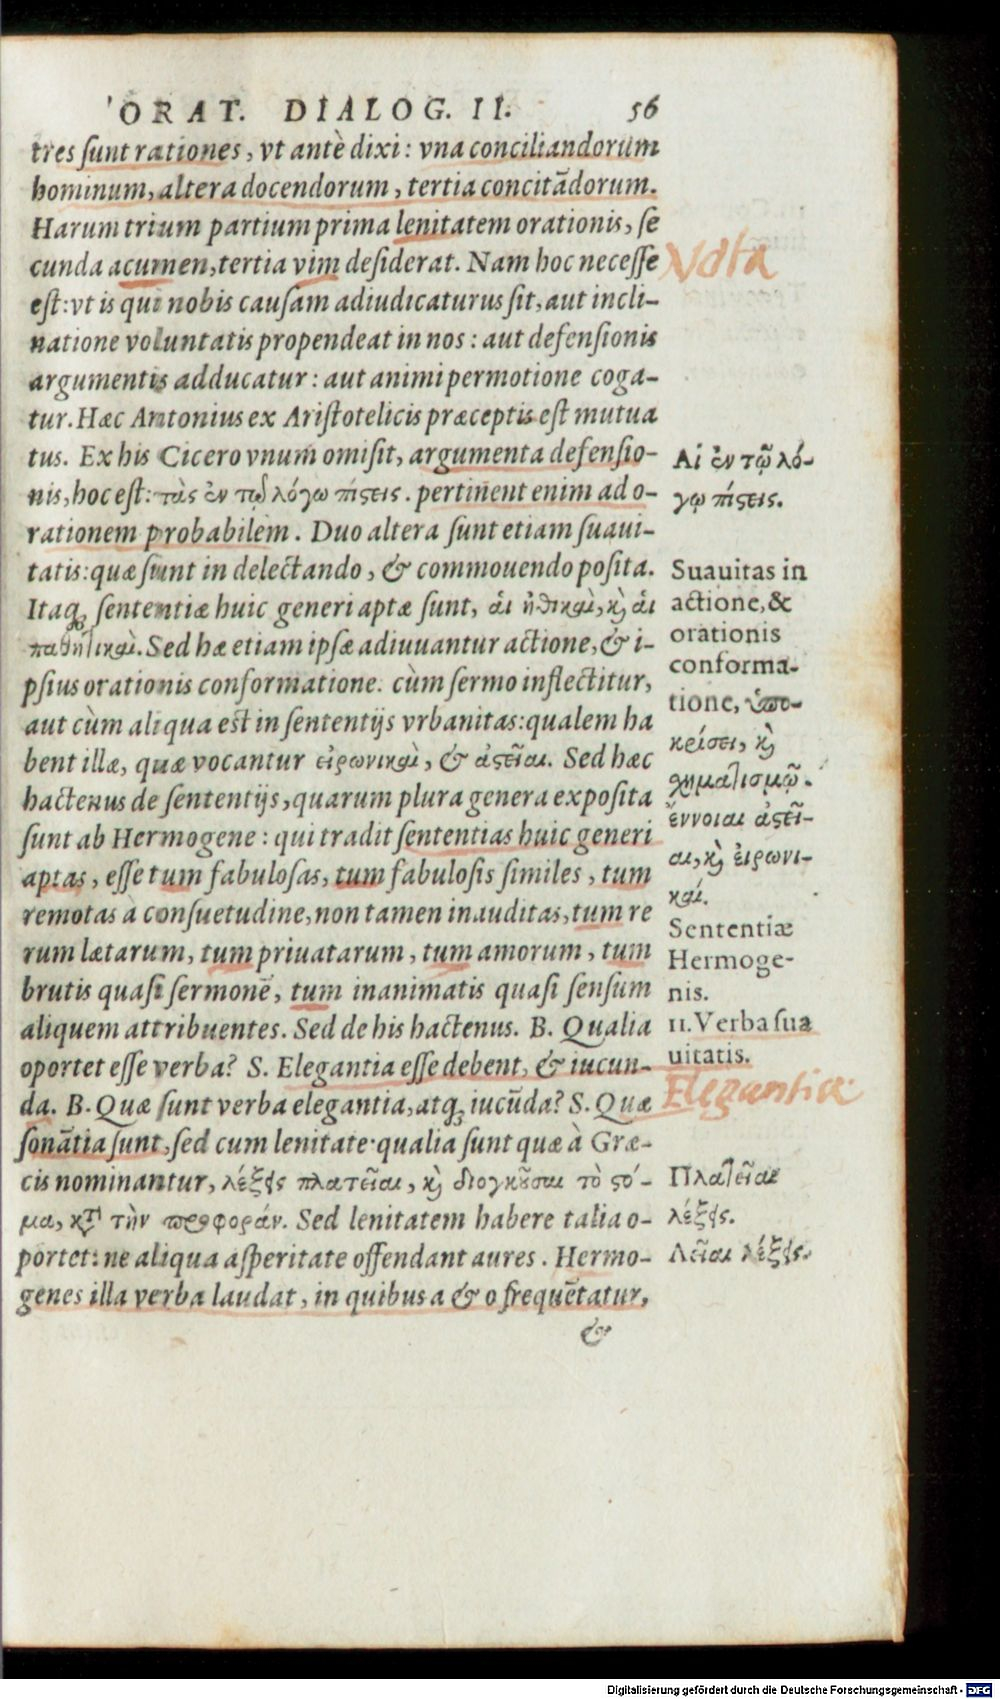 ORAT. DIALOG. II. 56
tres sunt rationes, vt antè dixi: vna conciliandorum
hominum, altera docendorum, tertia concitãdorum.
Harum trium partium prima lenitatem orationis, se
cunda acumen, tertia vim desiderat. Nam hoc necesse
est: vt is qui nobis causam adiudicaturus sit, aut incli-
natione voluntatis propendeat in nos: aut defensionis
argumentis adducatur: aut animi permotione coga-
tur. Hæc Antonius ex Aristotelicis præceptis est mutua
tus. Ex his Cicero vnum omisit, argumenta defensio-
nis, hoc est: τὰς ἐν τῷ λόγω πίστεις. pertinent enim ad o-
rationem probabilem. Duo altera sunt etiam suaui-
tatis: quæ sunt in delectando, & commouendo posita.
Itaq; sententiæ huic generi aptæ sunt, αἱ ἠθικαὶ, καὶ αἱ
παθητικαὶ. Sed hæ etiam ipsæ adiuuantur actione, & i-
psius orationis conformatione. cùm sermo inflectitur,
aut cùm aliqua est in sententijs vrbanitas: qualem ha
bent illæ, quæ vocantur εἰρωνικαὶ, & ἀστεῖαι. Sed hæc
hactenus de sententijs, quarum plura genera exposita
sunt ab Hermogene: qui tradit sententias huic generi
aptas, esse tum fabulosas, tum fabulosis similes, tum
remotas à consuetudine, non tamen inauditas, tum re
rum lætarum, tum priuatarum, tum amorum, tum
brutis quasi sermonẽ, tum inanimatis quasi sensum
aliquem attribuentes. Sed de his hactenus. B. Qualia
oportet esse verba? S. Elegantia esse debent, & iucun-
da. B. Quæ sunt verba elegantia, atq; iucũda? S. Quæ
sonãtia sunt, sed cum lenitate. qualia sunt quæ à Græ-
cis nominantur, λέξεις πλατεῖαι, καὶ διογκοῦσαι τὸ στό-
μα, κατὰ τὴν προφοράν. Sed lenitatem habere talia o-
portet: ne aliqua asperitate offendant aures. Hermo-
genes illa verba laudat, in quibus a & o frequẽtatur,
&
Nota
Αἱ ἐν τῷ λό-
γῳ πίστεις.
Suauitas in
actione, &
orationis
conforma-
tione, ὑπο-
κρίσει, καὶ
σχηματισμῷ.
ἔννοιαι ἀστεῖ-
αι, καὶ εἰρωνι-
καί.
Sententiæ
Hermoge-
nis.
11. Verba sua
uitatis.
Elegantia
Πλατεῖαι
λέξεις.
Λεῖαι λέξεις.
Digitalisierung gefördert durch die Deutsche Forschungsgemeinschaft - DFG